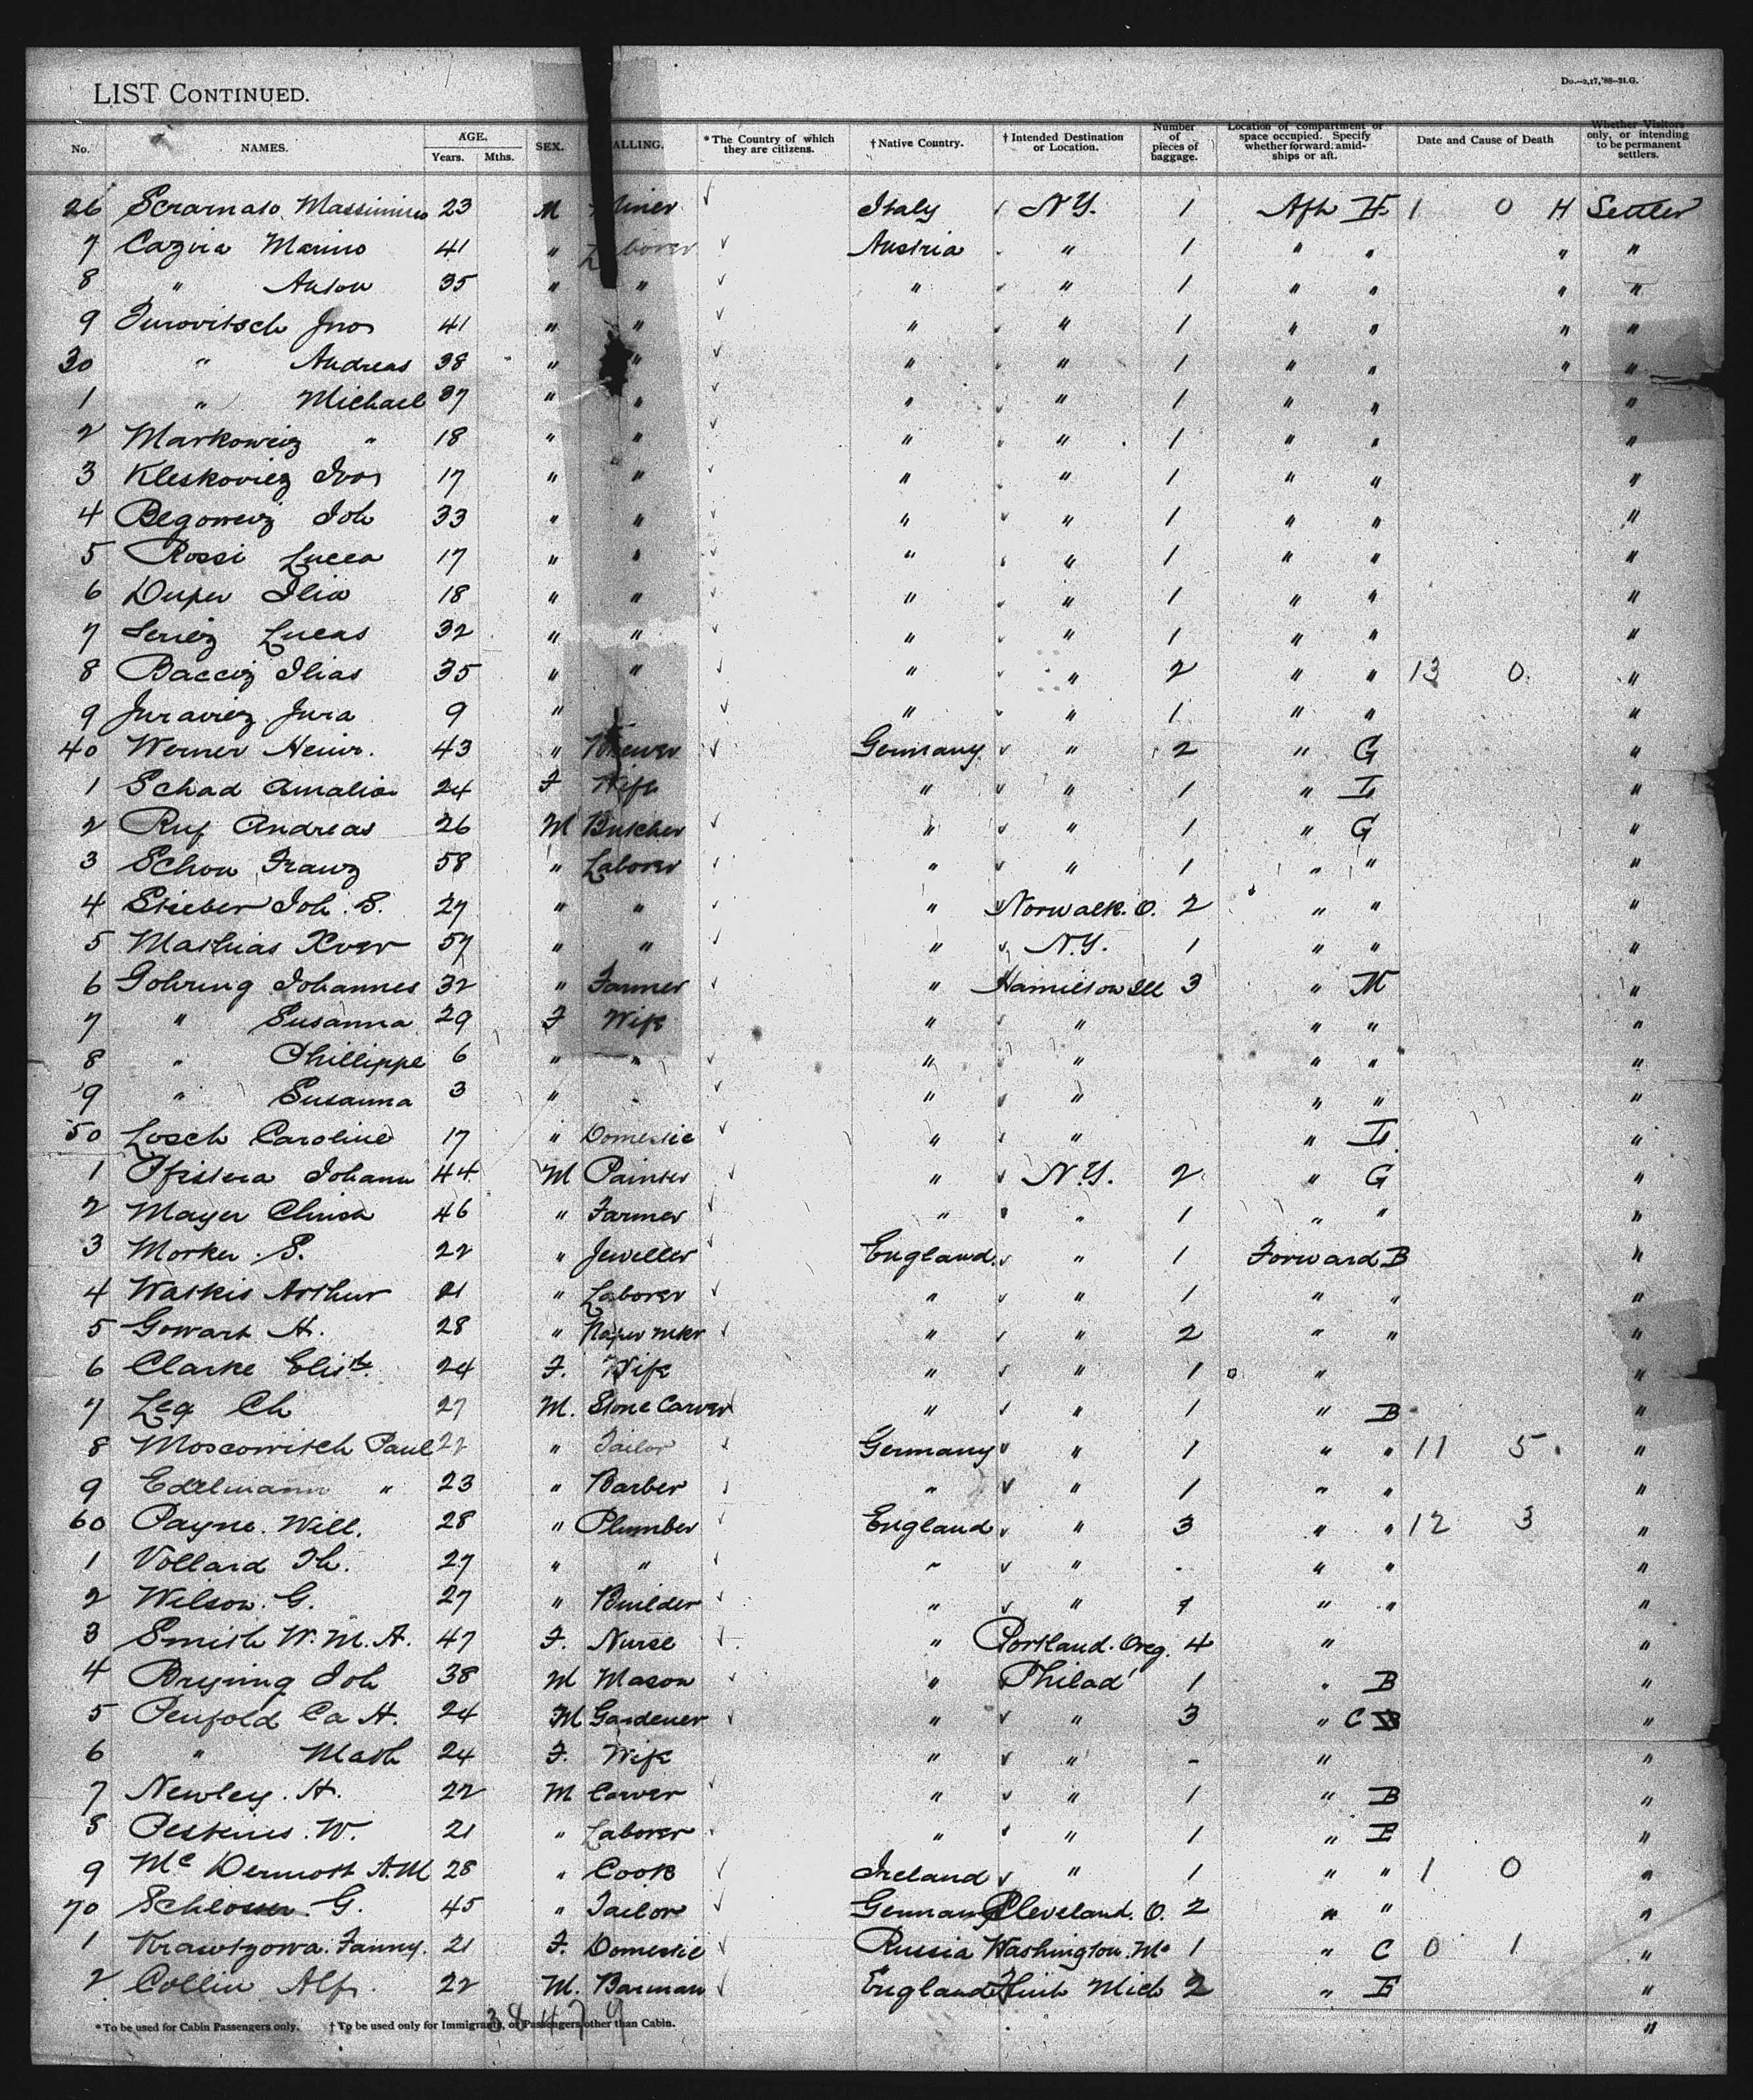 LIST CONTINUED.
Do.—2,17,'88—21.G.
No. NAMES. AGE. Years. Mths. SEX. ALLING. *The Country of which they are citizens. †Native Country. †Intended Destination or Location. Number of pieces of baggage. Location of compartment or space occupied. Specify whether forward, amidships or aft. Date and Cause of Death Whether Visitors only, or intending to be permanent settlers.
26 Massimino 23 M Miner ✓ Italy ✓ N.Y. 1 Aft H 1 0 H Settler
7 Marino 41 " Laborer ✓ Austria " 1 " " " "
8 " Anton 35 " " ✓ " ✓ " 1 " " " "
9 Jurovitsch Jno 41 " " ✓ " ✓ " 1 " " " "
30 " Andreas 38 " " ✓ " " 1 " " " "
1 " Michael 37 " " ✓ " ✓ " 1 " " "
2 Markowicz " 18 " " ✓ " " 1 " " "
3 Kleskovicz Ivo 17 " " ✓ " " 1 " " "
4 Begowicz Joh 33 " " ✓ " ✓ " 1 " " "
5 Rossi Lucca 17 " " ✓ " " 1 " " "
6 Duper Ilia 18 " " ✓ " ✓ " 1 " " "
7 Lucas 32 " " ✓ " ✓ " 1 " " "
8 Ilias 35 " " ✓ " " 2 " " 13 0 "
9 Juraviez Jura 9 " ✓ " " 1 " " "
40 Werner Heinr. 43 " Brewer ✓ Germany ✓ " 2 " G "
1 Schad Amalia 24 F Wife " ✓ " 1 " I "
2 Ruf Andreas 26 M Butcher ✓ " ✓ " 1 " G "
3 Schon Franz 58 " Laborer ✓ " ✓ " 1 " " "
4 Stieber Joh. S. 27 " " ✓ " ✓ Norwalk. O. 2 " " "
5 Mathias Xver 57 " " ✓ " ✓ N.Y. 1 " " "
6 Gohring Johannes 32 " Farmer ✓ " Hamilton Ill 3 " M "
7 " Susanna 29 F Wife " ✓ " " " "
8 " Phillippe 6 " " ✓ " ✓ " " " "
9 " Susanna 3 " ✓ " ✓ " " " "
50 Losch Caroline 17 " Domestic ✓ " ✓ " " I "
1 Pfistera Johann 44 M Painter ✓ " ✓ N.Y. 2 " G "
2 Mayer Christ 46 " Farmer ✓ " " 1 " " "
3 Morker S. 22 " Jeweller ✓ England ✓ " 1 Forward B "
4 Watkis Arthur 21 " Laborer ✓ " ✓ " 1 " " "
5 Gowart H. 28 " Paper mkr ✓ " ✓ " 2 " " "
6 Clarke Elisth 24 F. Wife " ✓ " 1 " "
7 Leg Ch 27 M. Stone Carver " ✓ " 1 " B "
8 Moscowitch Paul 22 " Tailor ✓ Germany ✓ " 1 " " 11 5 "
9 Edelmann " 23 " Barber ✓ " ✓ " 1 " " "
60 Payne. Will. 28 " Plumber ✓ England ✓ " 3 " " 12 3 "
1 Vollard Th. 27 " " ✓ " ✓ " - " " "
2 Wilson. G. 27 " Builder ✓ " ✓ " 1 " " "
3 Smith W. M. A. 47 F. Nurse ✓ " Portland. Oreg. 4 " "
4 Bryning Joh 38 M Mason ✓ " Philad' 1 " B "
5 Penfold Ca H. 24 M Gardener ✓ " ✓ " 3 " C "
6 " Math 24 F. Wife " ✓ " - " "
7 Newley. H. 22 M Carver ✓ " ✓ " 1 " B "
8 Peskins. W. 21 " Laborer ✓ " ✓ " 1 " E "
9 Mc Dermott A.M 28 " Cook ✓ Ireland ✓ " 1 " " 1 0 "
70 Schlosser. G. 45 " Tailor ✓ Germany Cleveland. O. 2 " " "
1 Krawtzowa. Fanny. 21 F. Domestic ✓ Russia Washington. Mo 1 " C 0 1 "
2 Collin Alf. 22 M. Barman ✓ England Flint Mich 2 " E "
*To be used for Cabin Passengers only. †To be used only for Immigrants, or Passengers other than Cabin.
38479
"